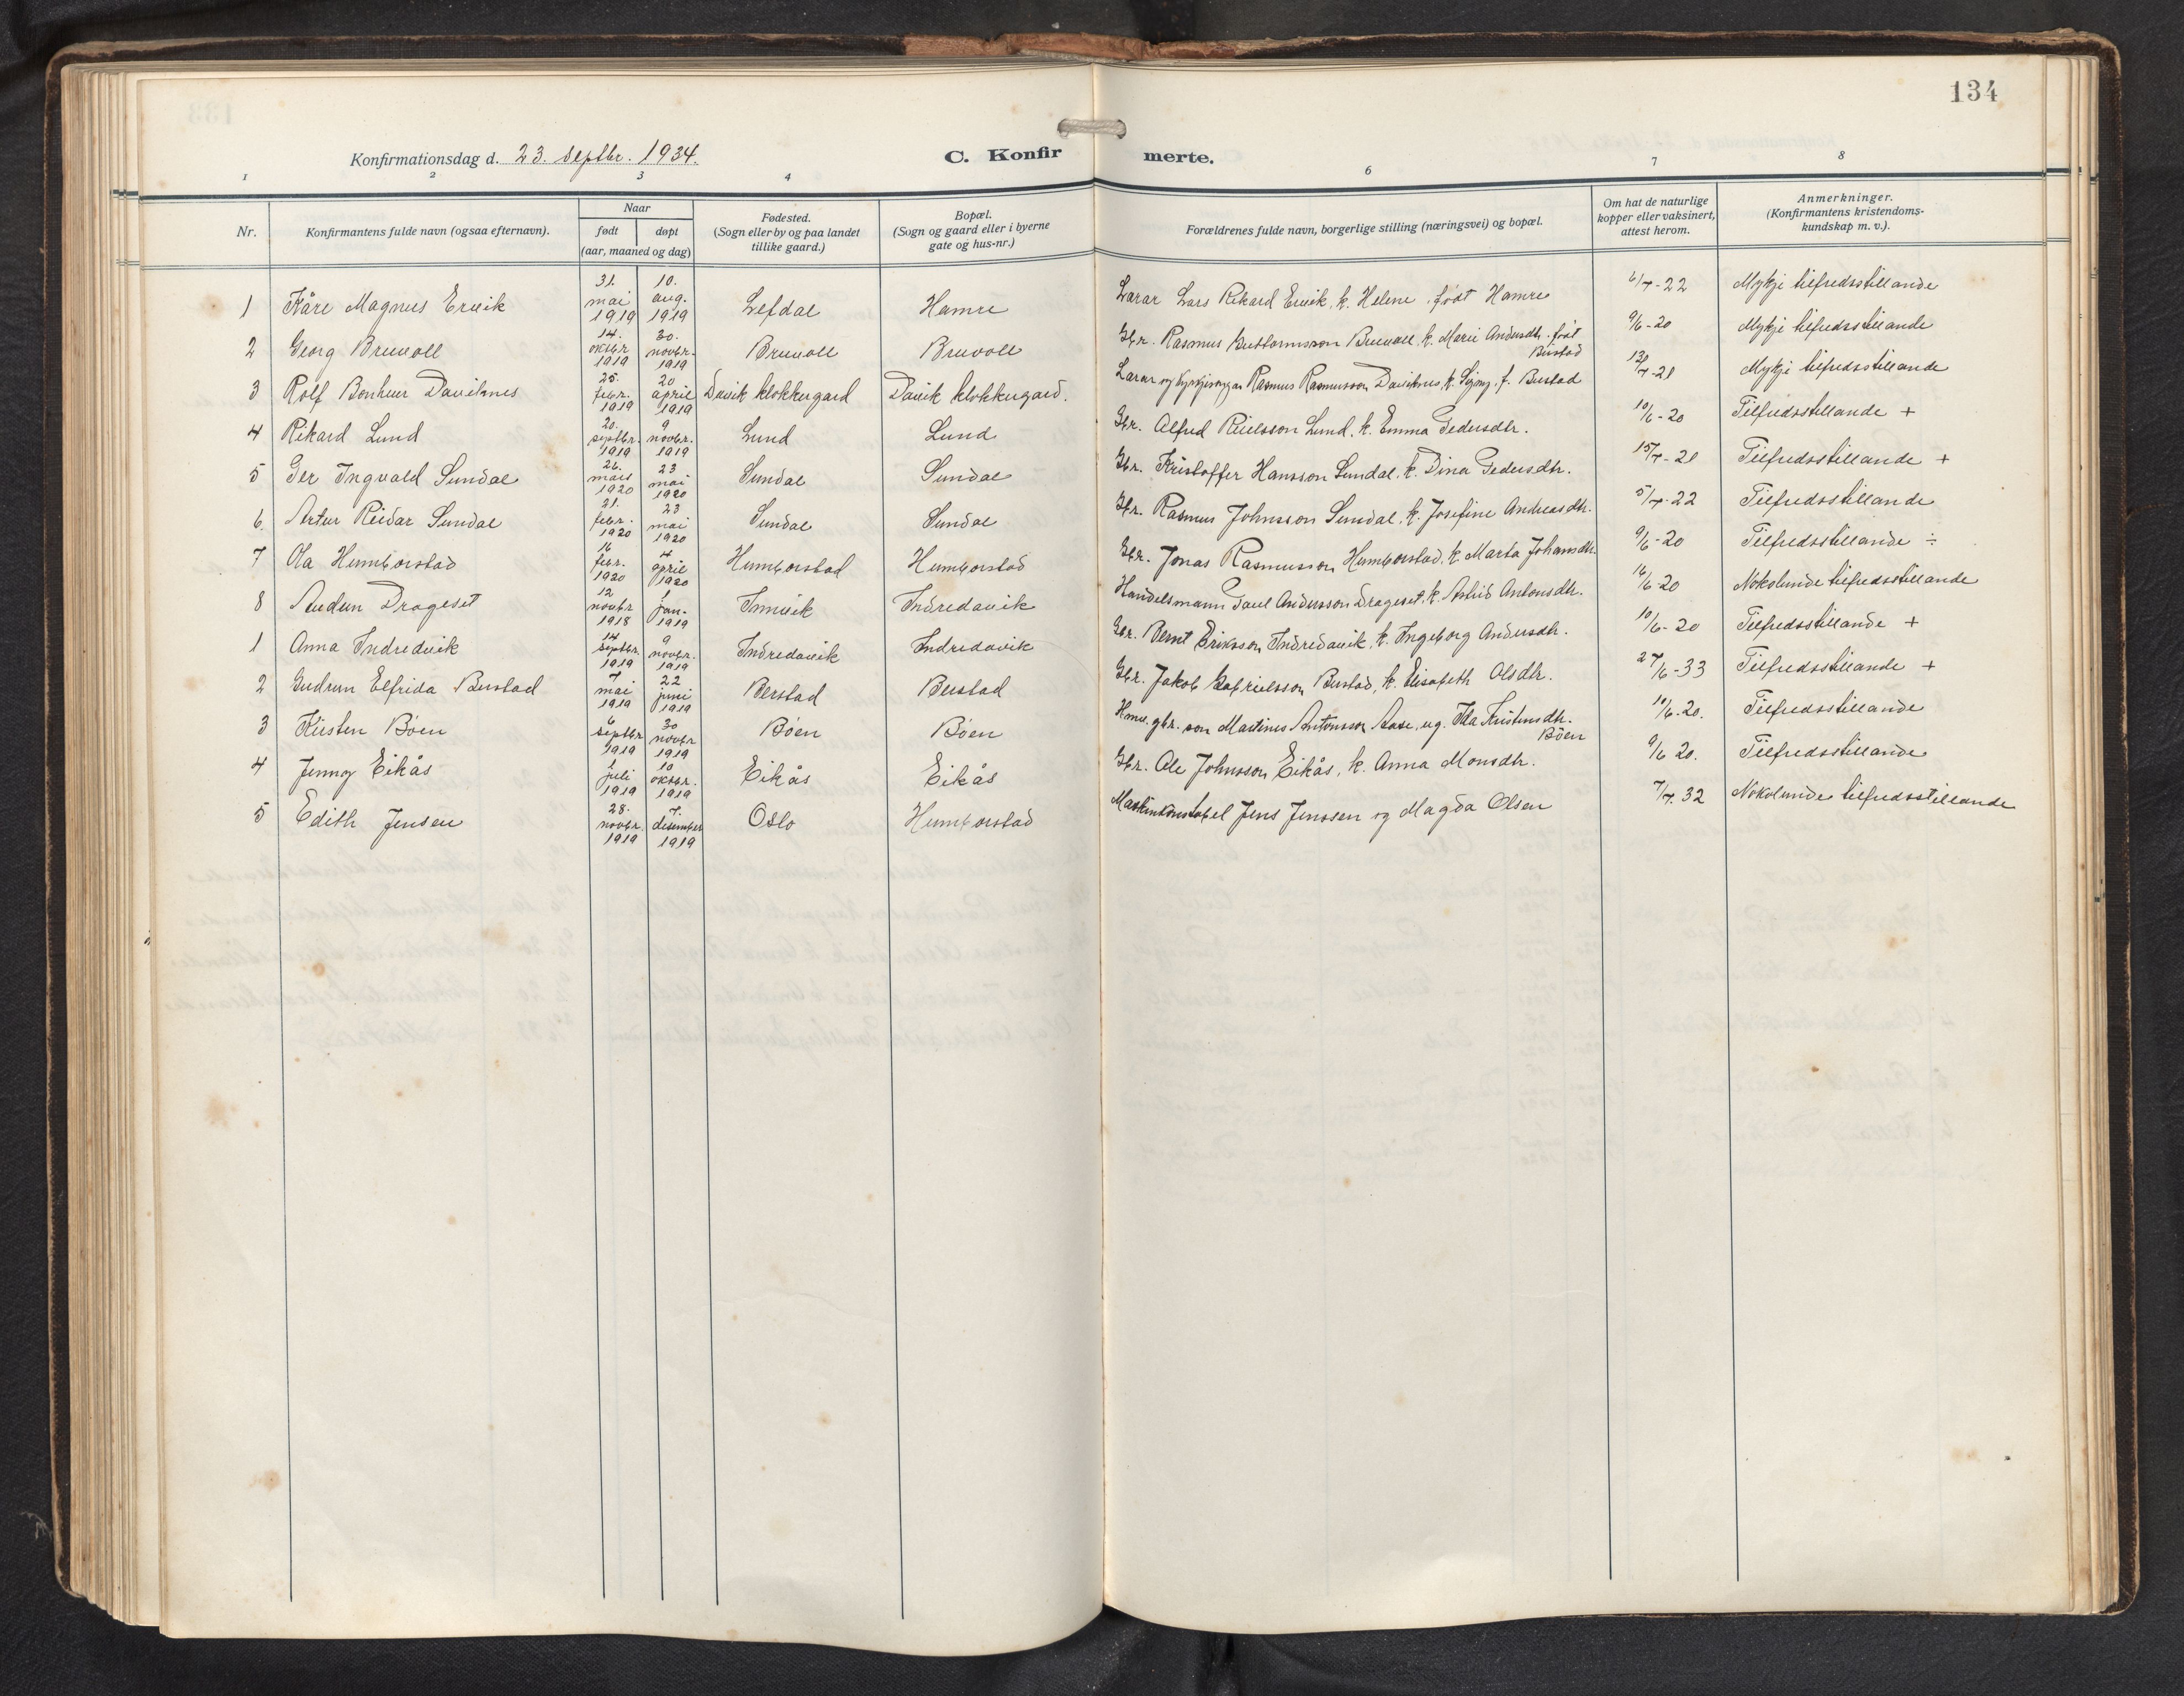 134
Konfirmationsdag d. 23. septbr. 1934.
C. Konfir merte.
1 2 3 4 6 7 8
Nr. Konfirmantens fulde navn (ogsaa efternavn). Naar født døpt (aar, maaned og dag) Fødested. (Sogn eller by og paa landet tillike gaard.) Bopæl. (Sogn og gaard eller i byerne gate og hus-nr.) Forældrenes fulde navn, borgerlige stilling (næringsvei) og bopæl. Om hat de naturlige kopper eller vaksinert, attest herom. Anmerkninger. (Konfirmantens kristendoms-kundskap m. v.).
1 Kåre Magnus Ervik 31. mai 1919 10. aug. 1919 Lefdal Hamre Lærar Lars Rikard Ervik, k. Helene, født Hamre 6/7-22 Mykje tilfredsstillande
2 Georg Bruvoll 14. oktbr 1919 30. novbr. 1919 Bruvoll Bruvoll Gbr. Rasmus Guttormsson Bruvoll, k. Marie Andersdtr. født Bustad 9/6-20 Mykje tilfredsstillande
3 Rolf Bonheur Daviknes 25. febr. 1919 20 april 1919 Davik klokkergard Davik klokkergard. Lærar og kyrkjesongar Rasmus Rasmusson Daviknes, k. Signy, f. Bustad 13/7-21 Mykje tilfredsstillande
4 Rikard Lund 20. septbr. 1919 9 novbr. 1919 Lund Lund Gbr. Alfred Nielsson Lund, k. Emma Pedersdtr. 10/6-20 Tilfredsstillande +
5 Per Ingvald Sundal 26. mars 1920 23 mai 1920 Sundal Sundal Gbr. Kristoffer Hansson Sundal, k. Dina Pedersdtr. 15/7-21 Tilfredsstillande +
6. Artur Reidar Sundal 21. febr. 1920 23 mai 1920 Sundal Sundal Gbr. Rasmus Johnsson Sundal, k. Josefine Andreasdtr. 5/7-22 Tilfredsstillande
7 Ola Humborstad 16 febr. 1920 4 april 1920 Humborstad Humborstad Gbr. Jonas Rasmusson Humborstad, k. Marta Johansdtr. 9/6-20 Tilfredsstillande ÷
8 Audun Drageset 12 novbr 1918 1 jan. 1919 Innvik Indredavik Handelsmann Paul Andersson Drageset, k. Astrid Antonsdtr. 16/6-20 Nokolunde tilfredsstillande
1 Anna Indredvik 14 septbr. 1919 9 novbr. 1919 Indredavik Indredavik Gbr. Bernt Eriksson Indredavik, k. Ingeborg Andersdtr. 10/6-20 Tilfredsstillande +
2 Gudrun Elfrida Bustad 7 mai 1919 22 juni 1919 Berstad Bustad Gbr. Jakob Gabrielsson Bustad, k. Elisabeth Olsdtr. 27/6-33 Tilfredsstillande +
3 Kirsten Böen 6 septbr 1919 30 novbr 1919 Böen Böen gbr. son Martinus Antonsson Aase, ug. Ida Kristensdtr. Böen 10/6-20. Tilfredsstillande
4 Jenny Eikås 1 juli 1919 10 oktbr. 1919 Eikås Eikås Gbr. Ole Johnsson Eikås, k. Anna Monsdtr. 9/6 20. Tilfredsstillande
5 Edith Jensen 28. novbr. 1919 7. desember 1919 Oslo Humborstad Maskinkonstabel Jens Jenssen og Magda Olsen 7/7. 32 Nokolunde tilfredsstillande